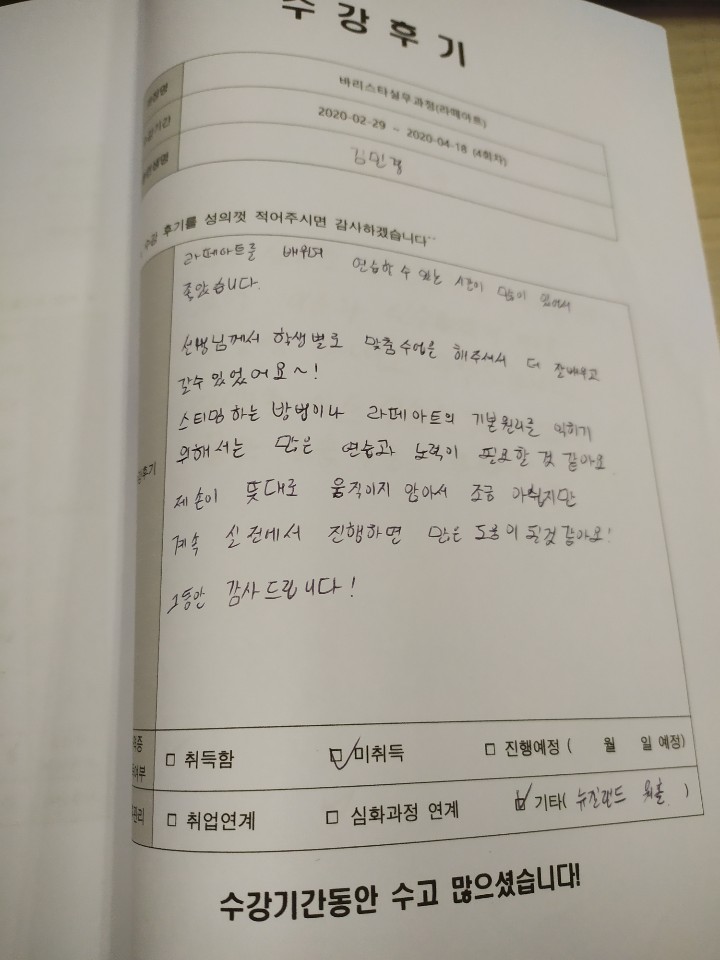 수강후기
과정명 바리스타실무과정(라떼아트)
수강기간 2020-02-29 ~ 2020-04-18 (4회차)
김민경
수강 후기를 성의껏 적어주시면 감사하겠습니다^^
라떼아트를 배우며 연습할 수 있는 시간이 많이 있어서
좋았습니다.
선생님께서 학생별로 맞춤수업을 해주셔서 더 잘배우고
갈수 있었어요~!
스티밍 하는 방법이나 라떼아트의 기본원리를 익히기
위해서는 많은 연습과 노력이 필요할 것 같아요
제 손이 뜻대로 움직이지 않아서 조금 아쉽지만
계속 실전에서 진행하면 많은 도움이 될것같아요!
그동안 감사드립니다!
수강후기
□ 취득함 ☑ 미취득 □ 진행예정 ( 월 일 예정)
□ 취업연계 □ 심화과정 연계 ☑ 기타( 뉴질랜드 워홀 )
수강기간동안 수고 많으셨습니다!